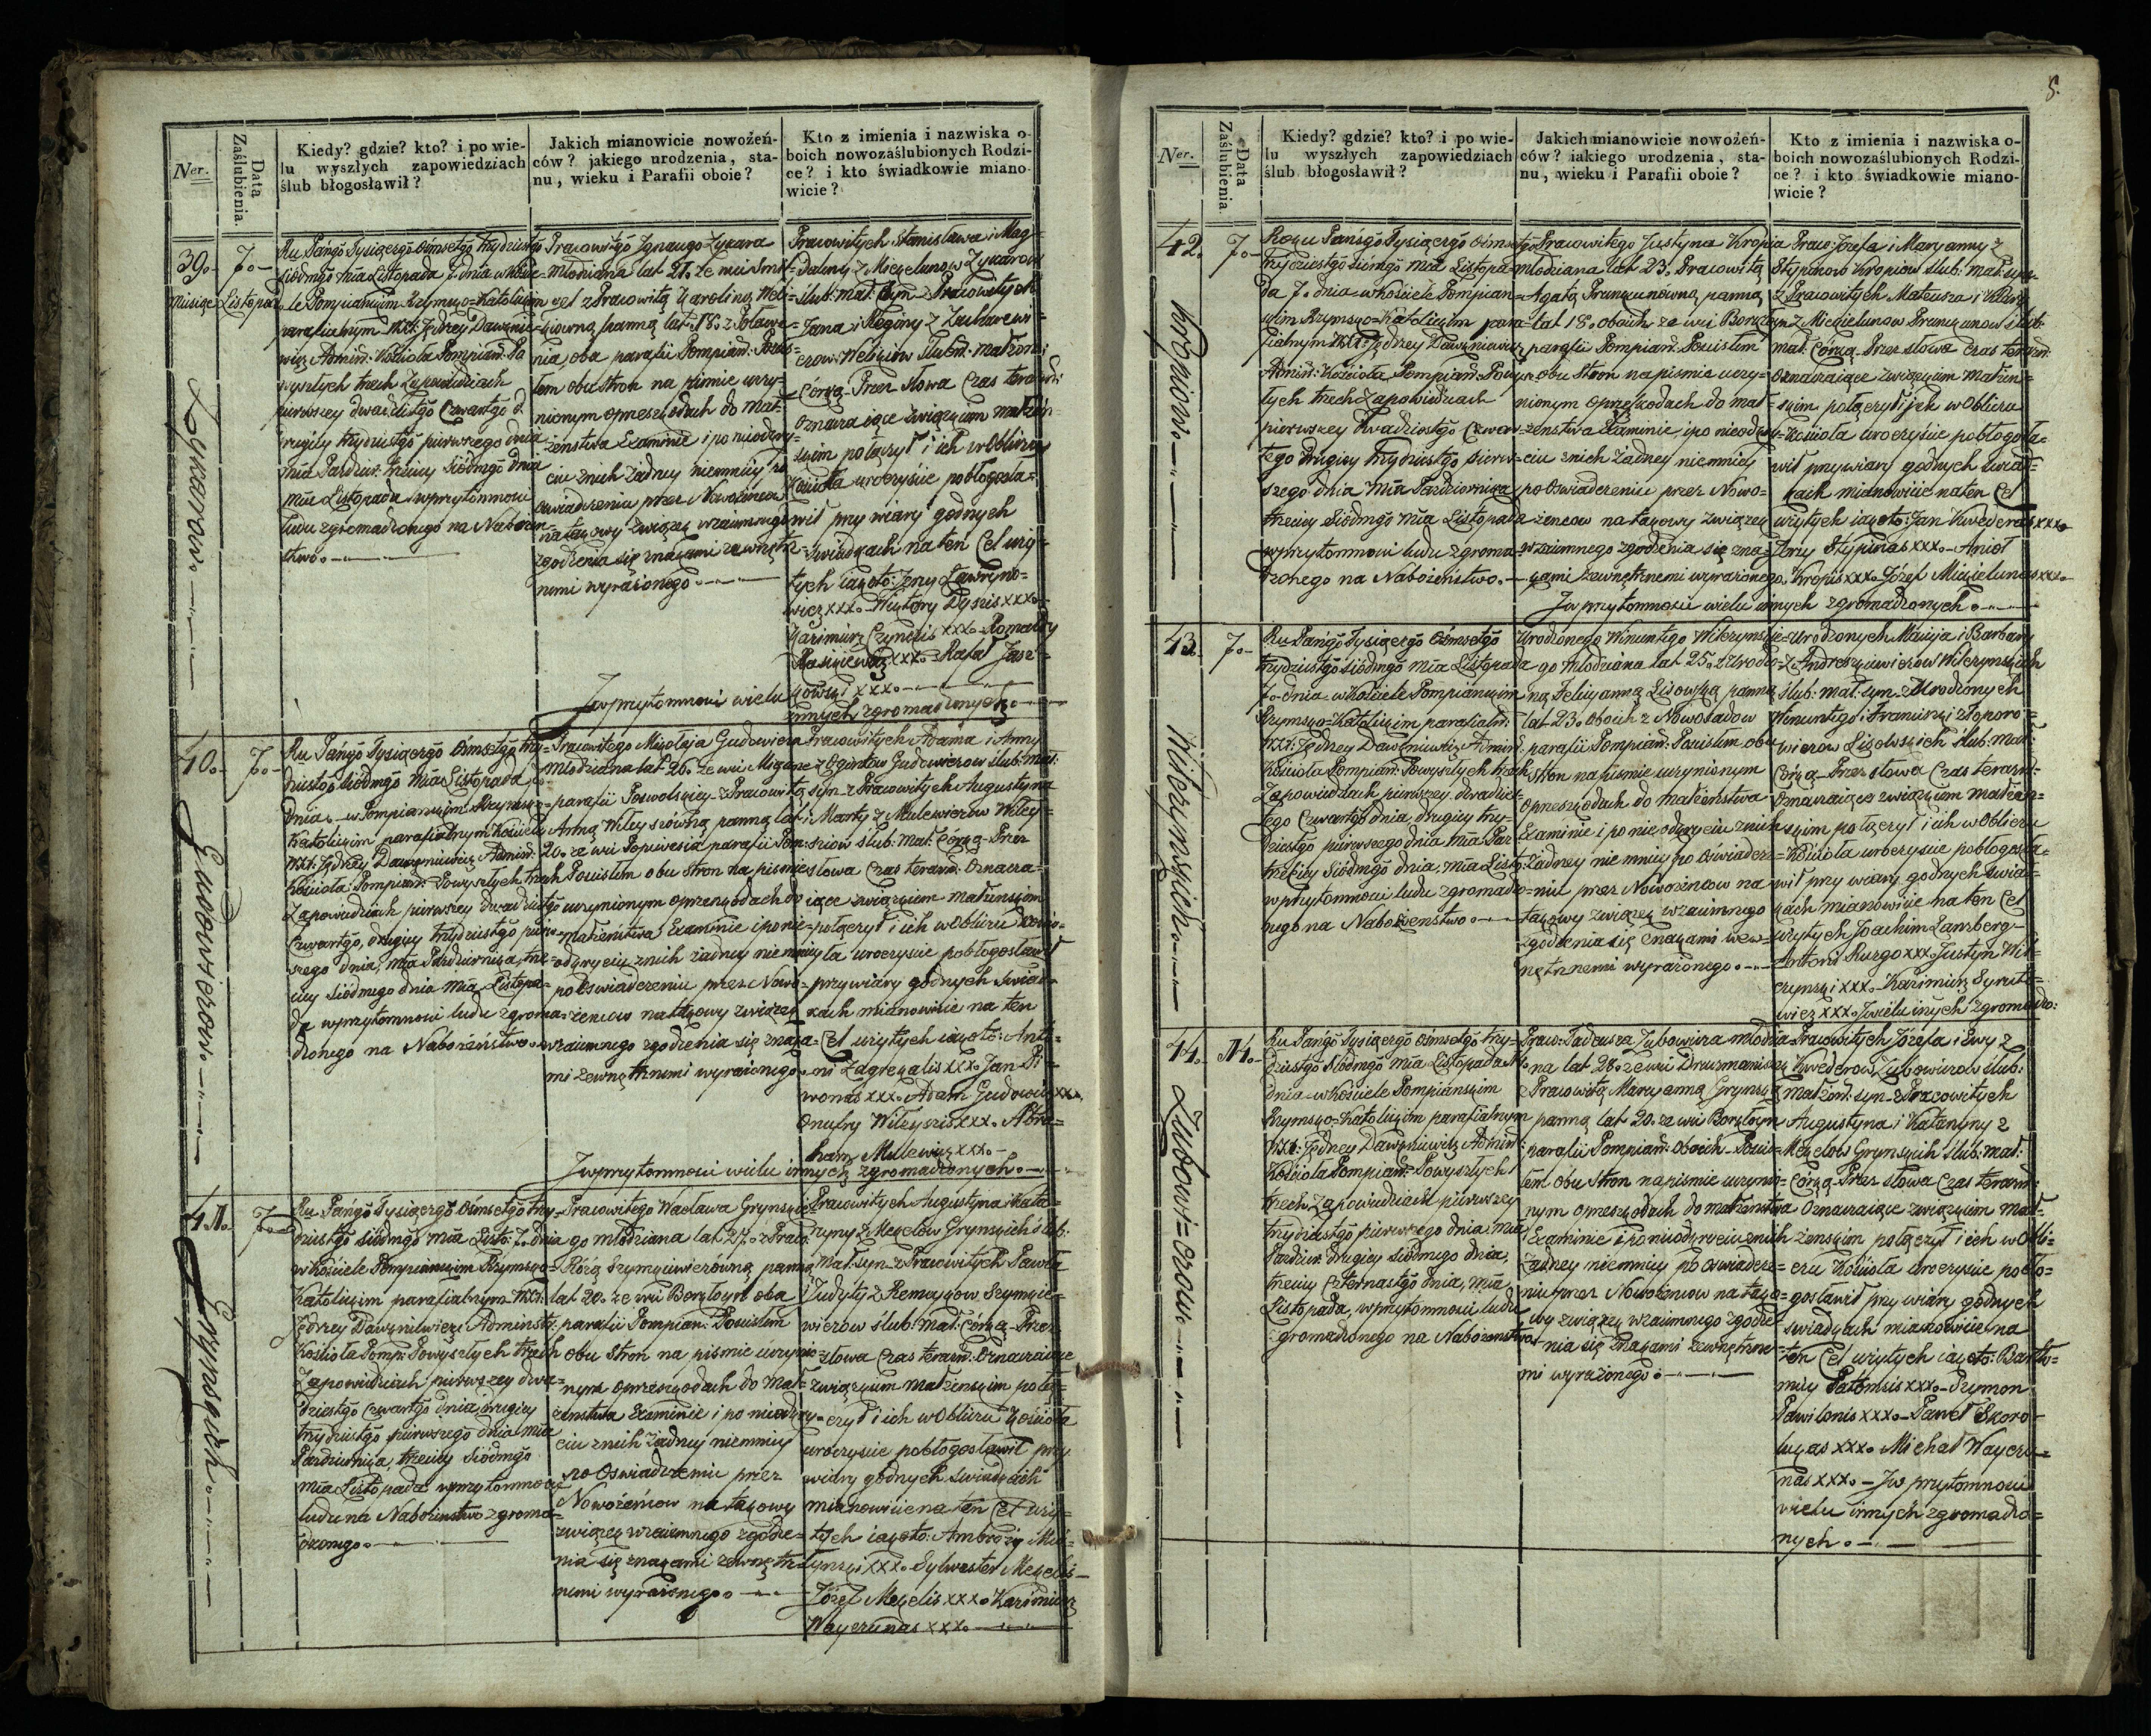 Ner.
Data Zaślubienia.
Kiedy? gdzie? kto? i po wie-
lu wyszłych zapowiedziach
ślub błogosławił?
Jakich mianowicie nowożeń-
ców? jakiego urodzenia, sta-
nu, wieku i Parafii oboie?
Kto z imienia i nazwiska o-
boich nowozaślubionych Rodzi-
ce? i kto świadkowie miano-
wicie?
39.
7.
Miesiąc Listopad
Ru Pańgo Tysiącgo Ośmsetgo Trzydziestgo
siódmgo mia Listopada 7. dnia w Koście-
le Pompianskim Rzymsko-Katolickim
parafialnym
wicz Admin: Kościoła Pompian: Po
wyszłych trzech Zapowiedziach
pierwszey dwudziestgo Czwartgo d.
drugiey trzydziestgo pierwszego dnia
mia Paździer: trzeciey siódmgo dnia
mia Listopada w przytomności
ludu zgromadzonego na Nabożeń-
stwo.
Pracowitgo Ignacego Zykara
młodziana lat 21. ze wsi
z Pracowitą Karoliną
panną lat 18. z
nia, oba parafii Pompian:
tem obu stron na piśmie uczy-
nionym o przeszkodach do mał-
żeństwa Examinie i po nieodkry-
ciu z nich żadney niemniey po
oświadczeniu przez Nowożeńców
na takowy związek wzaiemnego
zgodzenia się znakami zewnętrz-
nemi wyrażonego.
Pracowitych Stanisława i Mag-
daleny z Mickelunow Zykarow
ślub: mał: Syn - z Pracowitych
Jana i Reginy z
ślubn: małżon:
Córką - Przez słowa czas teraźń:
oznaczaiące związkiem małżeń-
skim połączył i ich w obliczu
Kościoła uroczyście pobłogosła-
wił przy wiary godnych
świadkach na ten cel uży-
tych iako to: Jerzy Ławryno-
wicz xxx. Wiktory xxx.
Kazimierz xxx. Romuald
xxx. Rafał Jasz-
kowski xxx.
I w przytomności wielu
innych zgromadzonych.
Zykarow.
40.
7.
Ru Pańgo Tysiącgo Ośmsetgo trzy-
dziestgo siódmgo mia Listopada 7.
dnia w Pompianskim Rzymsko-
Katolickim parafialnym Kościele
Jędrzey Dawgniewicz Admin:
Kościoła Pompian: Po wyszłych trzech
Zapowiedziach pierwszey dwudziestgo
Czwartgo, drugiey trzydziestgo pierw-
szego dnia, mia Października, trze-
ciey siódmego dnia mia Listopa-
da w przytomności ludu zgroma-
dzonego na Nabożeństwo.
Pracowitego Mikołaja Gudowicza
młodziana lat 26. ze wsi
parafii Poswolskiey z Pracowitą
Anną panną lat
20. ze wsi parafii Pom:
Poczistem obu stron na piśmie
uczynionym o przeszkodach do
małżeństwa, Examinie i po nie-
odkryciu z nich żadney niemniey
po oświadczeniu przez Nowo-
żeńcow na takowy związek
wzaiemnego zgodzenia się znaka-
mi zewnętrznemi wyrażonego.
Pracowitych Adama i Anny
z Ogintow Gudowiczow ślub: mał:
syn - z Pracowitych Augustyna
i Marty z Milewiczow
ślub: mał: Córką - Przez
słowa czas teraźń: oznacza-
iące związkiem małżeńskim
połączył i ich w obliczu Kościo-
ła uroczyście pobłogosławił
przy wiary godnych świad-
kach mianowicie na ten
cel użytych iako to: Anto-
ni Zdgregalis xxx. Jan Pi-
wonas xxx. Adam Gudowicz xxx.
Onufry xxx. Abra-
ham Milewicz xxx.
I w przytomności wielu innych zgromadzonych.
Gudowiczow.
41.
7.
Ru Pańgo Tysiącgo Ośmsetgo trzy-
dziestgo siódmgo mia Listo: 7. dnia
w Kościele Pompianskim Rzymsko-
Katolickim parafialnym
Jędrzey Dawgniewicz Adminstr:
Kościoła Pomp: Po wyszłych trzech
Zapowiedziach pierwszey dwu-
dziestgo czwartgo dnia, drugiey
trzydziestgo pierwszego dnia mia
Października, trzeciey siódmgo
mia Listopada w przytomności
ludu na Nabożeństwo zgroma-
dzonego.
Pracowitego Wacława Grynskie-
go młodziana lat 27. z Prac:
Rózą Szymkiewiczówną panną
lat 20. ze wsi oba
parafii Pompian: Poczistem
obu stron na piśmie uczynio-
nym o przeszkodach do mał-
żeństwa Examinie i po nieodkry-
ciu z nich żadney niemniey
po oświadczeniu przez
Nowożeńcow na takowy
związek wzaiemnego zgodze-
nia się znakami zewnętrz-
nemi wyrażonego.
Pracowitych Augustyna i Kata-
rzyny z Megelow Grynskich ślub:
mał: syn - z Pracowitych Pawła
i Judyty z Szymkie-
wiczow ślub: mał: Córką - Przez
słowa czas teraźń: oznaczaiące
związkiem małżeńskim połą-
czył i ich w obliczu Kościoła
uroczyście pobłogosławił przy
wiary godnych świadkach
mianowicie na ten cel uży-
tych iako to: Ambroży
xxx. Sylwester Megelis
Józef Megelis xxx. Kazimierz
Wayczunas xxx.
Grynskich.
5.
Ner.
Data Zaślubienia.
Kiedy? gdzie? kto? i po wie-
lu wyszłych zapowiedziach
ślub błogosławił?
Jakich mianowicie nowożeń-
ców? iakiego urodzenia, sta-
nu, wieku i Parafii oboie?
Kto z imienia i nazwiska o-
boich nowozaślubionych Rodzi-
ce? i kto świadkowie miano-
wicie?
42.
7.
Roku Pańsgo Tysiącgo Ośmsetgo
trzydziestgo siódmgo mia Listopa-
da 7. dnia w Kościele Pompian-
skim Rzymsko-Katolickim para-
fialnym Jędrzey Dawgniewicz
Admin: Kościoła Pompian: Po wysz-
łych trzech Zapowiedziach
pierwszey Dwudziestgo Czwar-
tego drugiey trzydziestgo pierw-
szego dnia mia Października
trzeciey siódmgo mia Listopada
w przytomności ludu zgroma-
dzonego na Nabożeństwo.
Pracowitego Justyna Kropia
młodziana lat 23. Pracowitą
Agatą panną
lat 18. oboich ze wsi
parafii Pompian: Poczistem
obu stron na piśmie uczy-
nionym o przeszkodach do mał-
żeństwa Examinie, i po nieodkry-
ciu z nich żadney niemniey
po oświadczeniu przez Nowo-
żeńcow na takowy związek
wzaiemnego zgodzenia się zna-
kami zewnętrznemi wyrażonego.
Praco: Józefa i Maryanny z
Stypinow Kropiow ślub: mał: syna
z Pracowitych Mateusza i
z Mickielunow ślub:
mał: Córką - Przez słowa czas teraźń:
oznaczaiące związkiem małżeń-
skim połączył i ich w obliczu
Kościoła uroczyście pobłogosła-
wił przy wiary godnych świad-
kach mianowicie na ten cel
użytych iako to: Jan Kwederas xxx.
Jerzy Stypinas xxx. Anioł
Kropis xxx. Józef Mickielunas xxx.
I w przytomności wielu innych zgromadzonych.
Kropiow.
43.
7.
Ru Pańgo Tysiącgo Ośmsetgo
trzydziestgo siódmgo mia Listopada
7. dnia w Kościele Pompianskim
Rzymsko-Katolickim parafialn:
Jędrzey Dawgniewicz Admin:
Kościoła Pompian: Po wyszłych trzech
Zapowiedziach pierwszey dwudzies-
tego czwartgo dnia, drugiey trzy-
dziestgo pierwszego dnia mia Paź:
trzeciey siódmgo dnia, mia Listo:
w przytomności ludu zgromadzo-
nego na Nabożeństwo.
Urodzonego Wincentgo Wilczynskie-
go młodziana lat 25. z Urodzo-
ną Felicyanną Lisowską panną
lat 23. oboich z Nowosadow
parafii Pompian: Poczistem obu
stron na piśmie uczynionym
o przeszkodach do małżeństwa
Examinie i po nieodkryciu z nich
żadney niemniey po oświadcze-
niu przez Nowożeńcow na
takowy związek wzaiemnego
zgodzenia się znakami zew-
nętrznemi wyrażonego.
Urodzonych Macieja i Barbary
z Andreszkiewiczow Wilczynskich
ślub: mał: syn - z Urodzonych
Wincentego i Franciszki z
Lisowskich ślub: mał:
Córką - Przez słowa czas teraźń:
oznaczaiące związkiem małżeń-
skim połączył i ich w obliczu
Kościoła uroczyście pobłogosła-
wił przy wiary godnych świad-
kach mianowicie na ten cel
użytych Joachim Lamzberg
Antoni Rurgo xxx. Justyn Wil-
czynski xxx. Kazimierz Syrute-
wicz xxx. I wielu inych zgromadzo:
Wilczynskich.
44.
14.
Ru Pańgo Tysiącgo Ośmsetgo trzy-
dziestgo siódmgo mia Listopada 14.
dnia w Kościele Pompianskim
Rzymsko-Katolickim parafialnym
Jędrzey Dawgniewicz Admin:
Kościoła Pompian: Po wyszłych
trzech Zapowiedziach pierwszey
trzydziestgo pierwszego dnia, mia
Paździer: drugiey siódmego dnia,
trzeciey czternastgo dnia, mia
Listopada, w przytomności ludu
zgromadzonego na Nabożeństwo.
Praco: Tadeusza Zubowicza młodzia-
na lat 28. ze wsi
z Pracowitą Maryanną Grynską
panną lat 20. ze wsi
parafii Pompian: oboich - Poczis-
tem obu stron na piśmie uczynio-
nym o przeszkodach do małżeństwa
Examinie i po nieodkryciu z nich
żadney niemniey po oświadcze-
niu przez Nowożeńcow na tako-
wy związek wzaiemnego zgodze-
nia się znakami zewnętrzne-
mi wyrażonego.
Pracowitych Józefa i Ewy z
Kwederow Zubowiczow ślub:
małżon: syn - z Pracowitych
Augustyna i Katarzyny z
Megelow Grynskich ślub: mał:
Córką - Przez słowa czas teraźń:
oznaczaiące związkiem mał-
żenskim połączył i ich w obli-
czu Kościoła uroczyście pobło-
gosławił przy wiary godnych
świadkach mianowicie na
ten cel użytych iako to: Bartło-
miey xxx. Szymon
Pawilonis xxx. Paweł Skoro-
lukas xxx. Michał Wayczu-
nas xxx. I w przytomności
wielu innych zgromadzo-
nych.
Zubowi=czow.